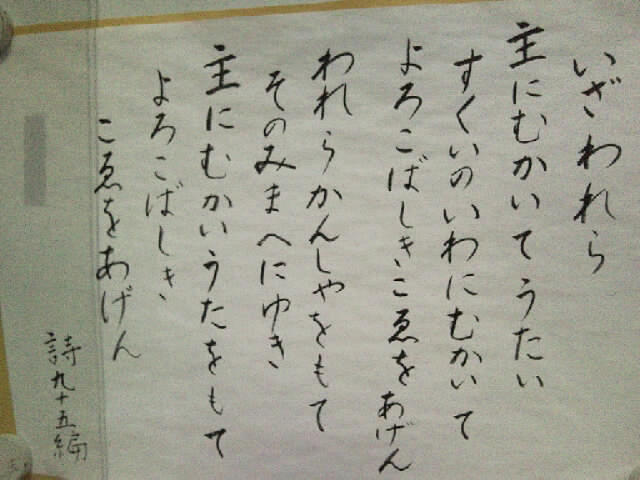 いざわれら
主にむかいてうたい
すくいのいわにむかいて
よろこばしきこゑをあげん
われらかんしやをもて
そのみまへにゆき
主にむかいうたをもて
よろこばしき
こゑをあげん
詩九十五編